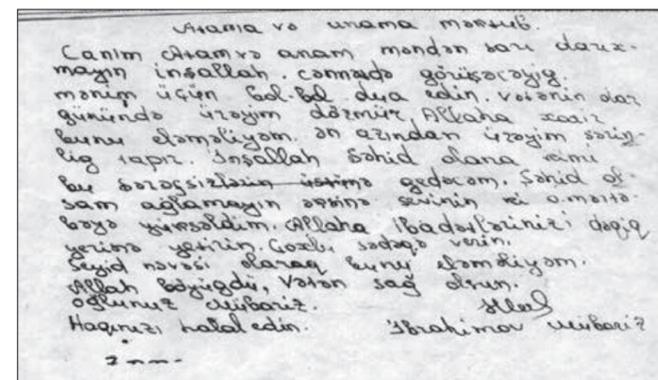 Atama və anama məktub.
Canım Atam və anam məndən sarı darıx-
mayın inşallah. cənnətdə görüşəcəyig.
mənim üçün bol-bol dua edin. Vətənin dar
günündə ürəyim dözmür, Allaha xatir
bunu eləməliyəm. ən azından ürəyim sərin-
lig tapır. İnşallah Şəhid olana kimi
bu şərəfsizlərin üstünə gedəcəm. Şəhid ol-
sam ağlamayın əksinə sevinin ki o mərtə-
bəyə yüksəldim. Allaha İbadətlərinizi dəqiq
yerinə yetirin. Çoxlu sədəqə verin.
Seyid nəvəsi olaraq bunu eləməliyəm.
Allah böyügdü, Vətən sağ olsun.
Oğlunuz Mübariz.
Haqınızı halal edin. İbrahimov Mübariz